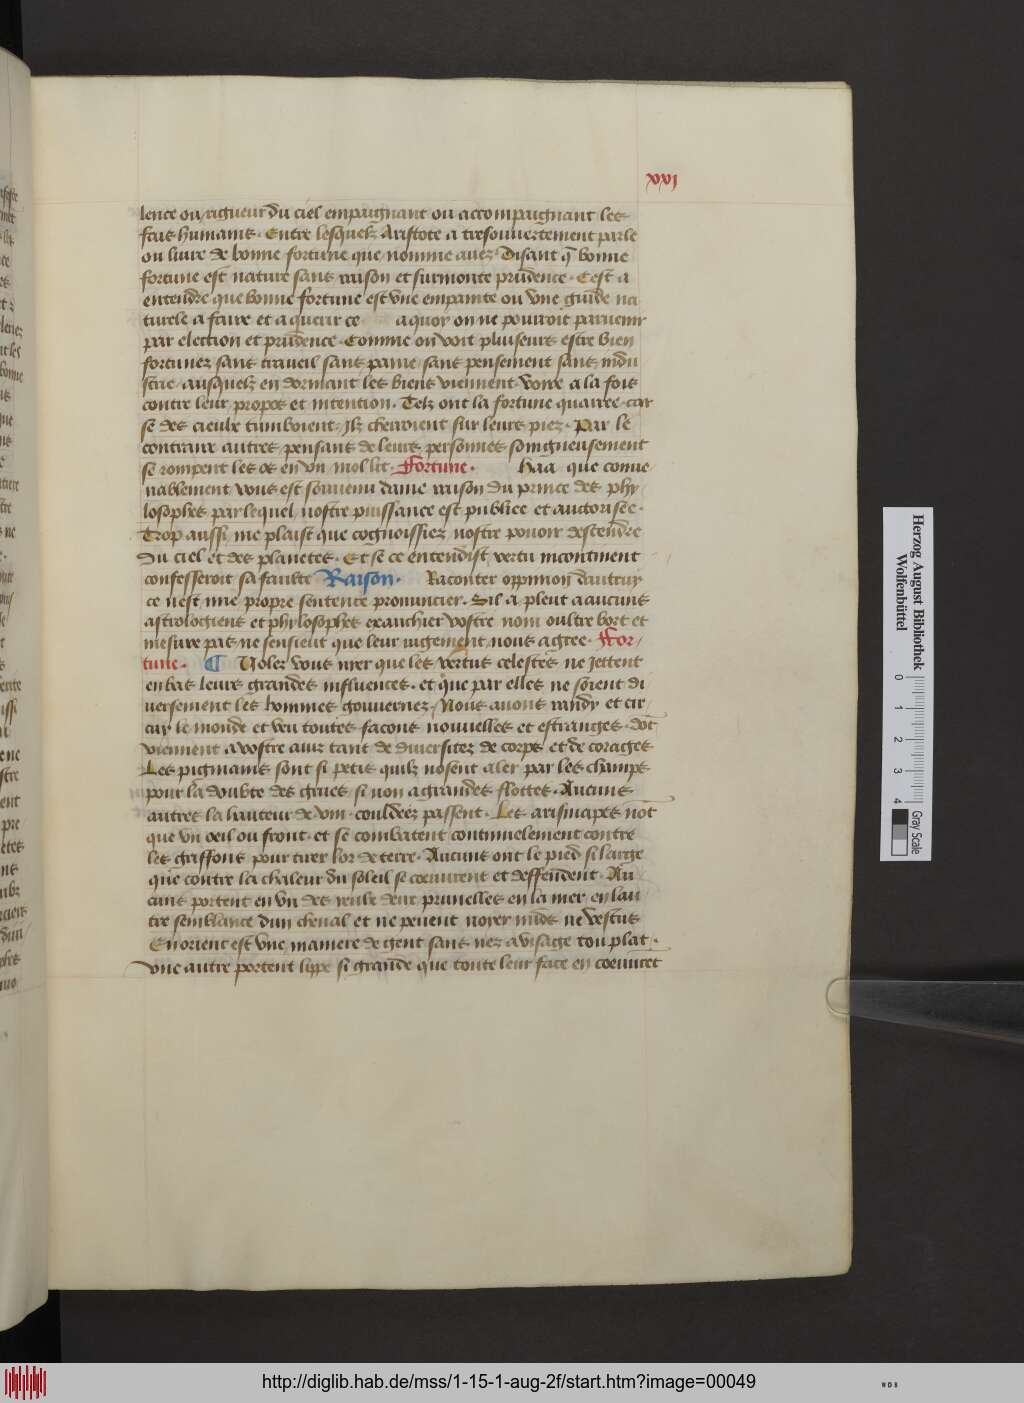 xvj
lence ou rigueur du ciel empaignant ou accompaignant les
fais humains. Entre lesquelz Aristote a tresouuertement parle
ou liure de bonne fortune que nomme auez. Disant q̄ bonne
fortune est nature sans raison et surmonte prudence. Cest a
entendre que bonne fortune est vne empainte ou vne guide na
turele a faire et aquerir ce a quoy on ne pouroit paruenir
par election et prudence. Comme on voit pluiseurs estre bien
fortunez sans traueil sans paine sans pensement sans indu
strie ausquelz en dormant les biens viennent voire a la fois
contre leur propos et intention. Telz ont la fortune quarree. car
se des cieulx tumboient. Jlz cherroient sur leurs piez. Par le
contraire autres pensans de leurs personnes soingneusement
se rompent les os en vn mol lit. Fortune. Haa que conue
nablement vous est souuenu dame raison du prince des phy
losophes par lequel nostre puissance est publiee et auctorisee.
Trop aussi me plaist que cognoissiez nostre pouoir descendre
du ciel et des planetes. Et se ce entendist vertu incontinent
confesseroit sa faulte Raison. Raconter oppinion dautruy
ce nest mie propre sentence pronuncier. Sil a pleut a aucuns
astrologiens et phylosophes exauchier vostre nom oultre bort et
mesure pas ne sensieut que leur iugement nous agree. For-
tune. ¶ Volez vous nyer que les vertus celestes ne jettent
en bas leurs grandes influences. et que par elles ne soient di
uersement les hommes gouuernez. Nous auons randy et cir
cuy le monde et veu toutes facons nouuelles et estranges. dōt
viennent a vostre auiz tant de diuersitez de corps et de corages
Les pigmains sont si petis quilz nosent aler par les champs
pour la doubte des grues si non a grandes flottes. Aucuns
autres la hauteur de viij. couldees passent. Les arismapes nōt
que vn oeil ou front. et se combatent continuelement contre
les griffons pour tirer lor de terre. Aucuns ont le pied si large
que contre la chaleur du soleil se coeuurent et deffendent. Au
cuns portent en vn des yeulx deux prunelles en la mer en lau
tre semblance dun cheual et ne peuent noyer nudz ne vestus
En orient est vne maniere de gent sans nez a visage tou plat.
vne autre portent lippe si grande que toute leur face en coeuuret
Herzog August Bibliothek
Wolfenbüttel
0 1 2 3 4
Gray Scale
http://diglib.hab.de/mss/1-15-1-aug-2f/start.htm?image=00049